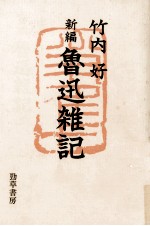 竹内 好
新編
魯迅雑記
勁草書房